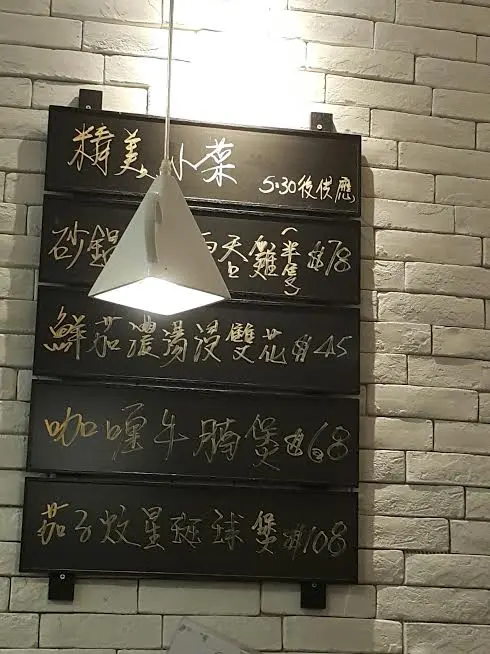 精美小菜
5:30後供應
砂鍋 天 雞 (半隻) $78
鮮茄濃湯浸雙花 $45
咖喱牛腩煲 $68
茄子炆星斑球煲 $108